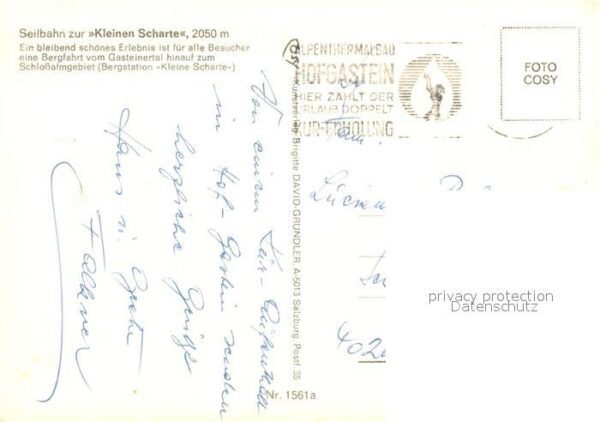 Seilbahn zur »Kleinen Scharte«, 2050 m
Ein bleibend schönes Erlebnis ist für alle Besucher
eine Bergfahrt vom Gasteinertal hinauf zum
Schloßalmgebiet (Bergstation »Kleine Scharte«)
Von einem Kur-Aufenthalt
in Hof-Gastein senden
herzliche Grüße
Hans u. Grete
Falkner
ALPENTHERMALBAD
HOFGASTEIN
HIER ZÄHLT DER
URLAUB DOPPELT
KUR-ERHOLUNG
FOTO
COSY
Kunstverlag Brigitte DAVID-GRÜNDLER A-5013 Salzburg, Postf. 35
Nr. 1561a
Fam.
402
privacy protection
Datenschutz